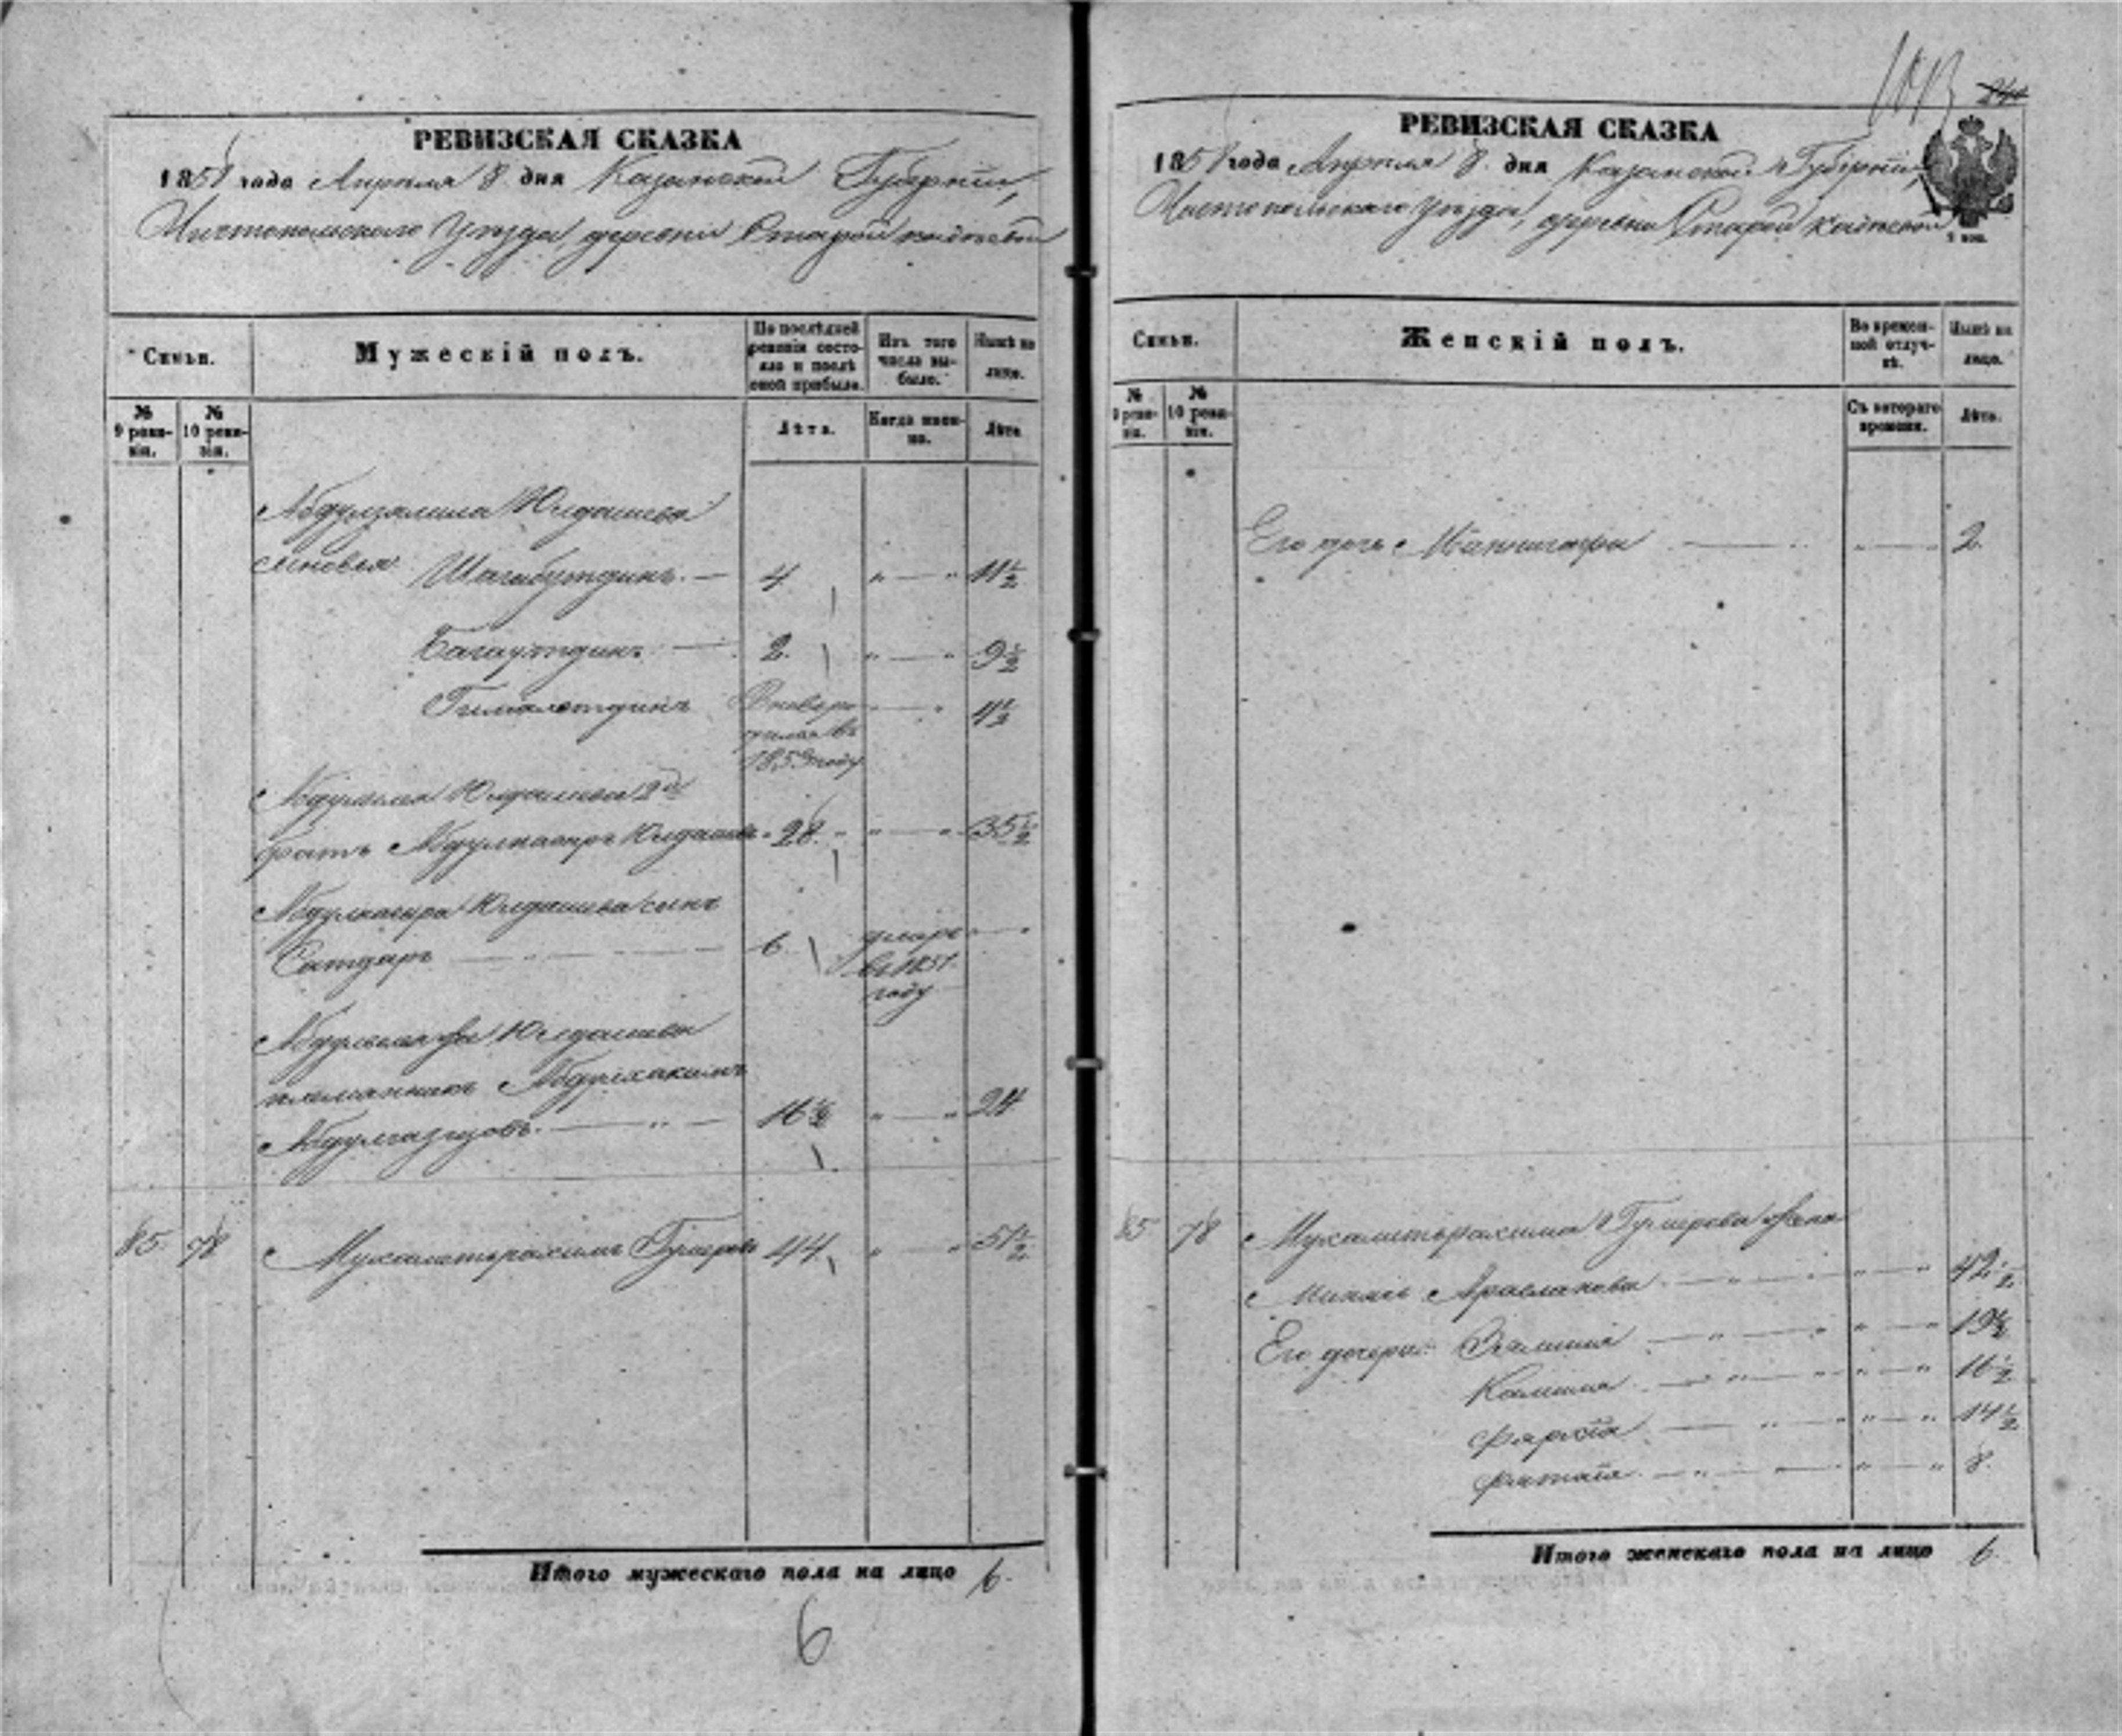 РЕВИЗСКАЯ СКАЗКА
1858 года Апреля 8 дня Казанской Губернии,
Чистопольского Уезда, деревни Старой
Семьи.
Мужескій полъ.
По послѣдней ревизіи состояло и послѣ оной прибыло.
Изъ того числа выбыло.
Нынѣ на лицо.
№ 9 ревизіи.
№ 10 ревизіи.
Лѣта.
Когда именно.
Лѣта
Абдулзалила Юлдашева
сыновья Шагабутдинъ 4 11½
Багаутдинъ 2 9½
Гималетдинъ 4½
1853 году
Юлдашева 2й
братъ Юлдашевъ 28 35½
Юлдашева сынъ
Сатдаръ 6 умеръ
въ 1851
году
Юлдашева
племянникъ Абдулхакимъ
Абдулгазизовъ 16½ 24
85 78 Мухаметьрахимъ Гумеровъ 44 51½
Итого мужескаго пола на лицо 6.
6
1013
24
РЕВИЗСКАЯ СКАЗКА
1858 года Апреля 8 дня Казанской Губерніи,
Чистопольскаго Уезда, деревни Старой
Семьи.
Женскій полъ.
Во временной отлучкѣ.
Нынѣ на лицо.
№ 9 ревизіи.
№ 10 ревизіи.
Съ котораго времени.
Лѣта.
Его дочь 2
85 78 Мухаметьрахима Гумерова жена
Арасланова 42½
Его дочери: 19½
Камиля 16½
14½
8
Итого женскаго пола на лицо 6.